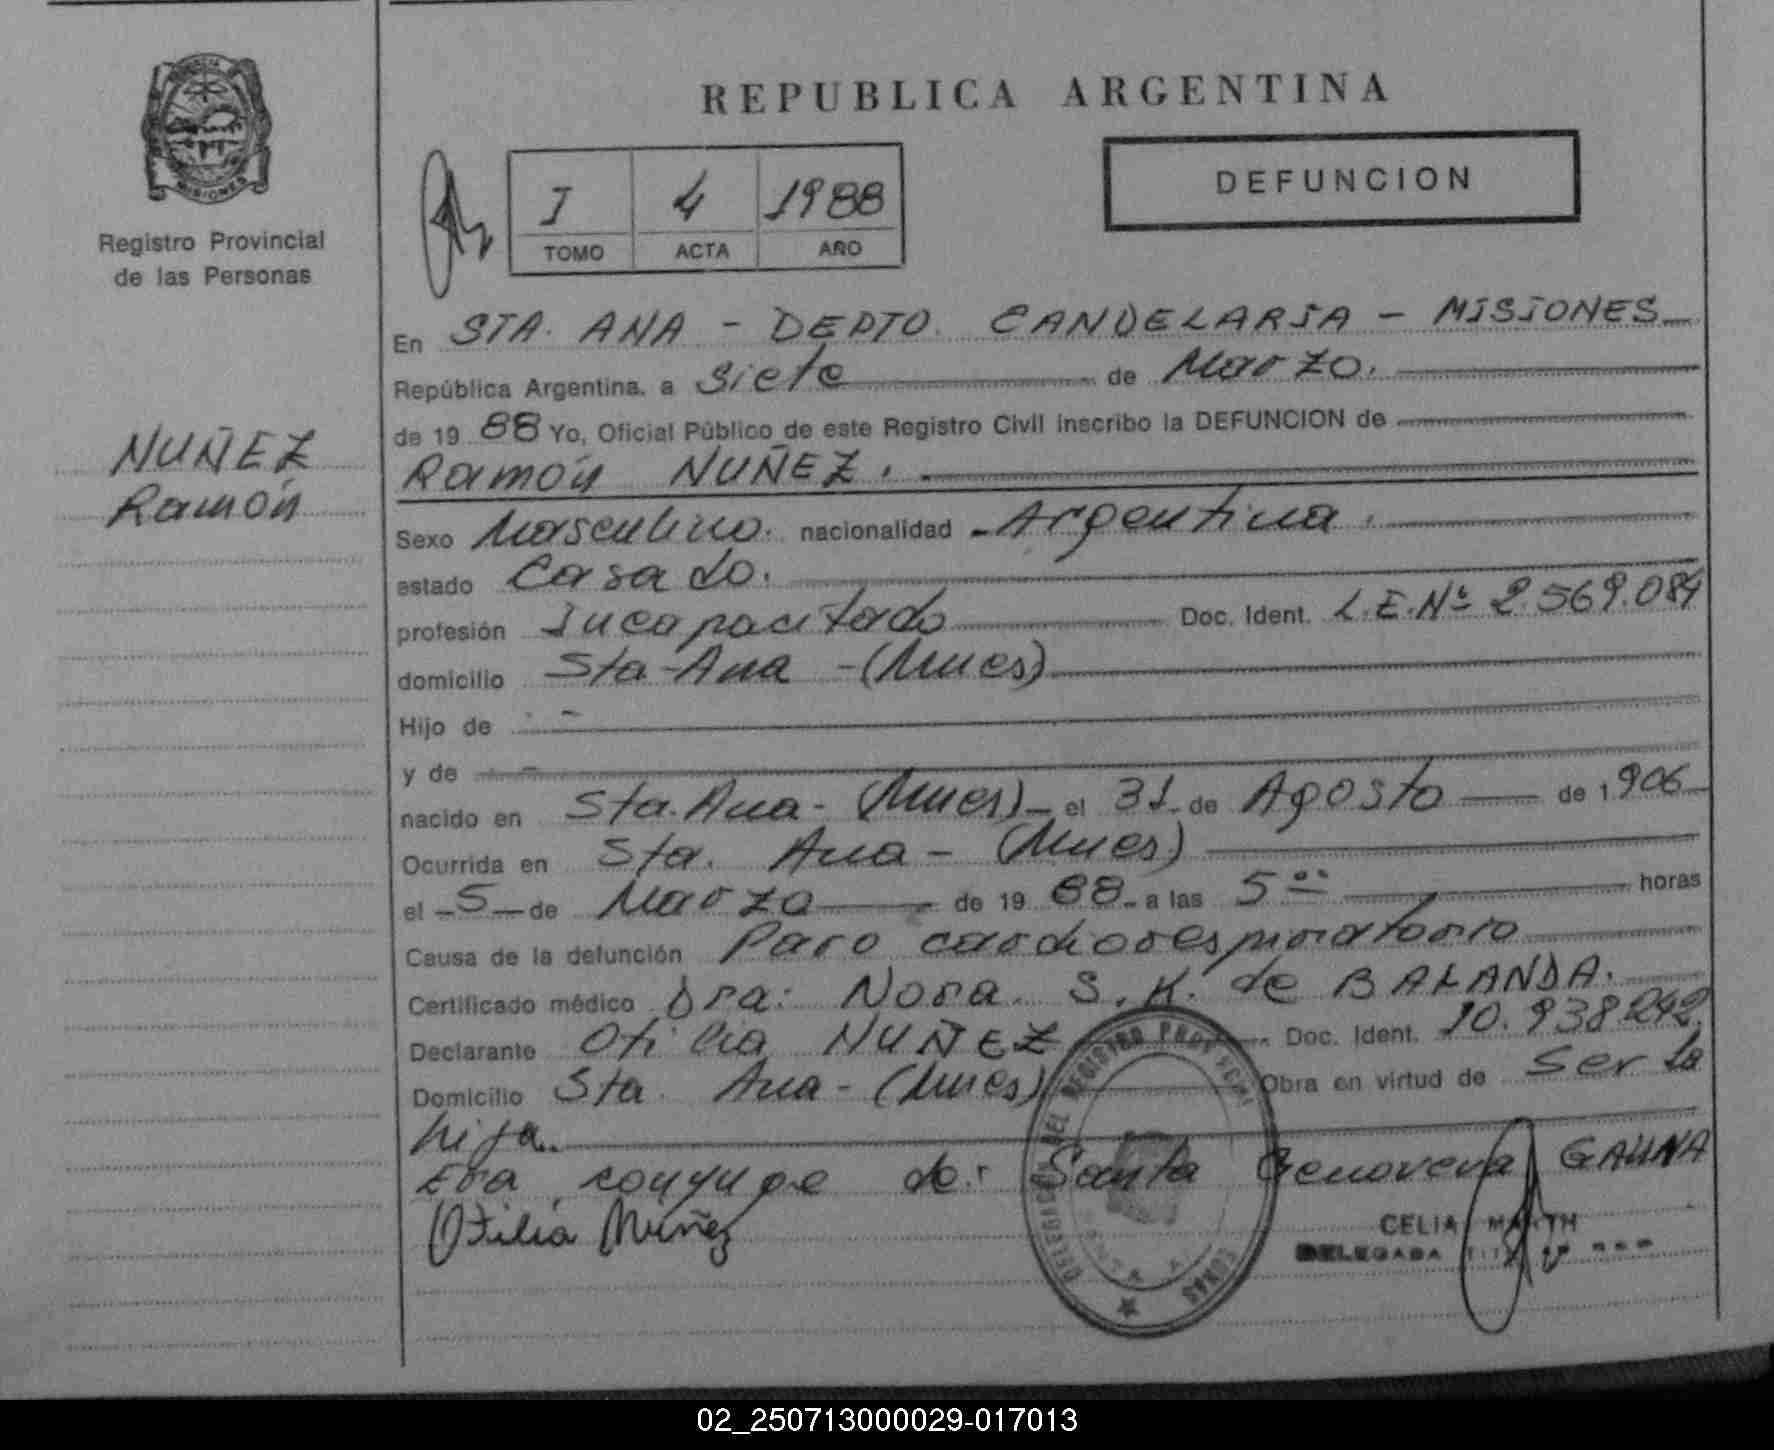 REPUBLICA ARGENTINA
DEFUNCION
MISIONES
Registro Provincial
de las Personas
I 4 1988
TOMO ACTA AÑO
NUÑEZ
Ramón
En STA. ANA - DEPTO. CANDELARIA - MISIONES
República Argentina, a siete de Marzo.
de 19 88 Yo, Oficial Público de este Registro Civil inscribo la DEFUNCION de
Ramón NUÑEZ.
Sexo Masculino. nacionalidad - Argentina.
estado Casado.
profesión Incapacitado Doc. Ident. L.E.Nº 2.569.084
domicilio Sta-Ana - (Mnes)
Hijo de -
y de -
nacido en Sta. Ana - (Mnes) - el 31 - de Agosto - de 1.906
Ocurrida en Sta. Ana - (Mnes)
el - 5 - de Marzo de 19 88 - a las 5 ºº horas
Causa de la defunción Paro cardiorespiratorio
Certificado médico Dra: Nora S. K. de BALANDA.
Declarante Otilia NUÑEZ Doc. Ident. 10.938.242
Domicilio Sta. Ana - (Mnes) Obra en virtud de ser la
hija.
Era conyuge de: Santa Genoveva GAUNA
Otilia Núñez
CELIA
DELEGADA
DELEGACION DEL REGISTRO PROVINCIAL
02_250713000029-017013